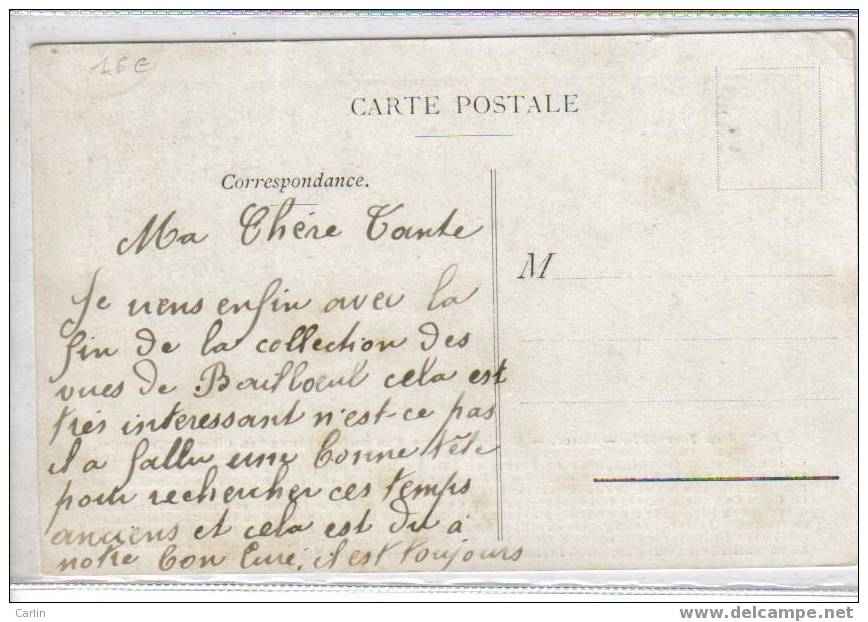 16€
CARTE POSTALE
Correspondance.
Ma Chére Tante
M
Je viens enfin avec la
fin de la collection des
vues de Bailloeul cela est
trés interessant n'est-ce pas
il a fallu une bonne tête
pour rechercher ces temps
anciens et cela est du à
notre bon Curé, il est toujours
Carlin
www.delcampe.net